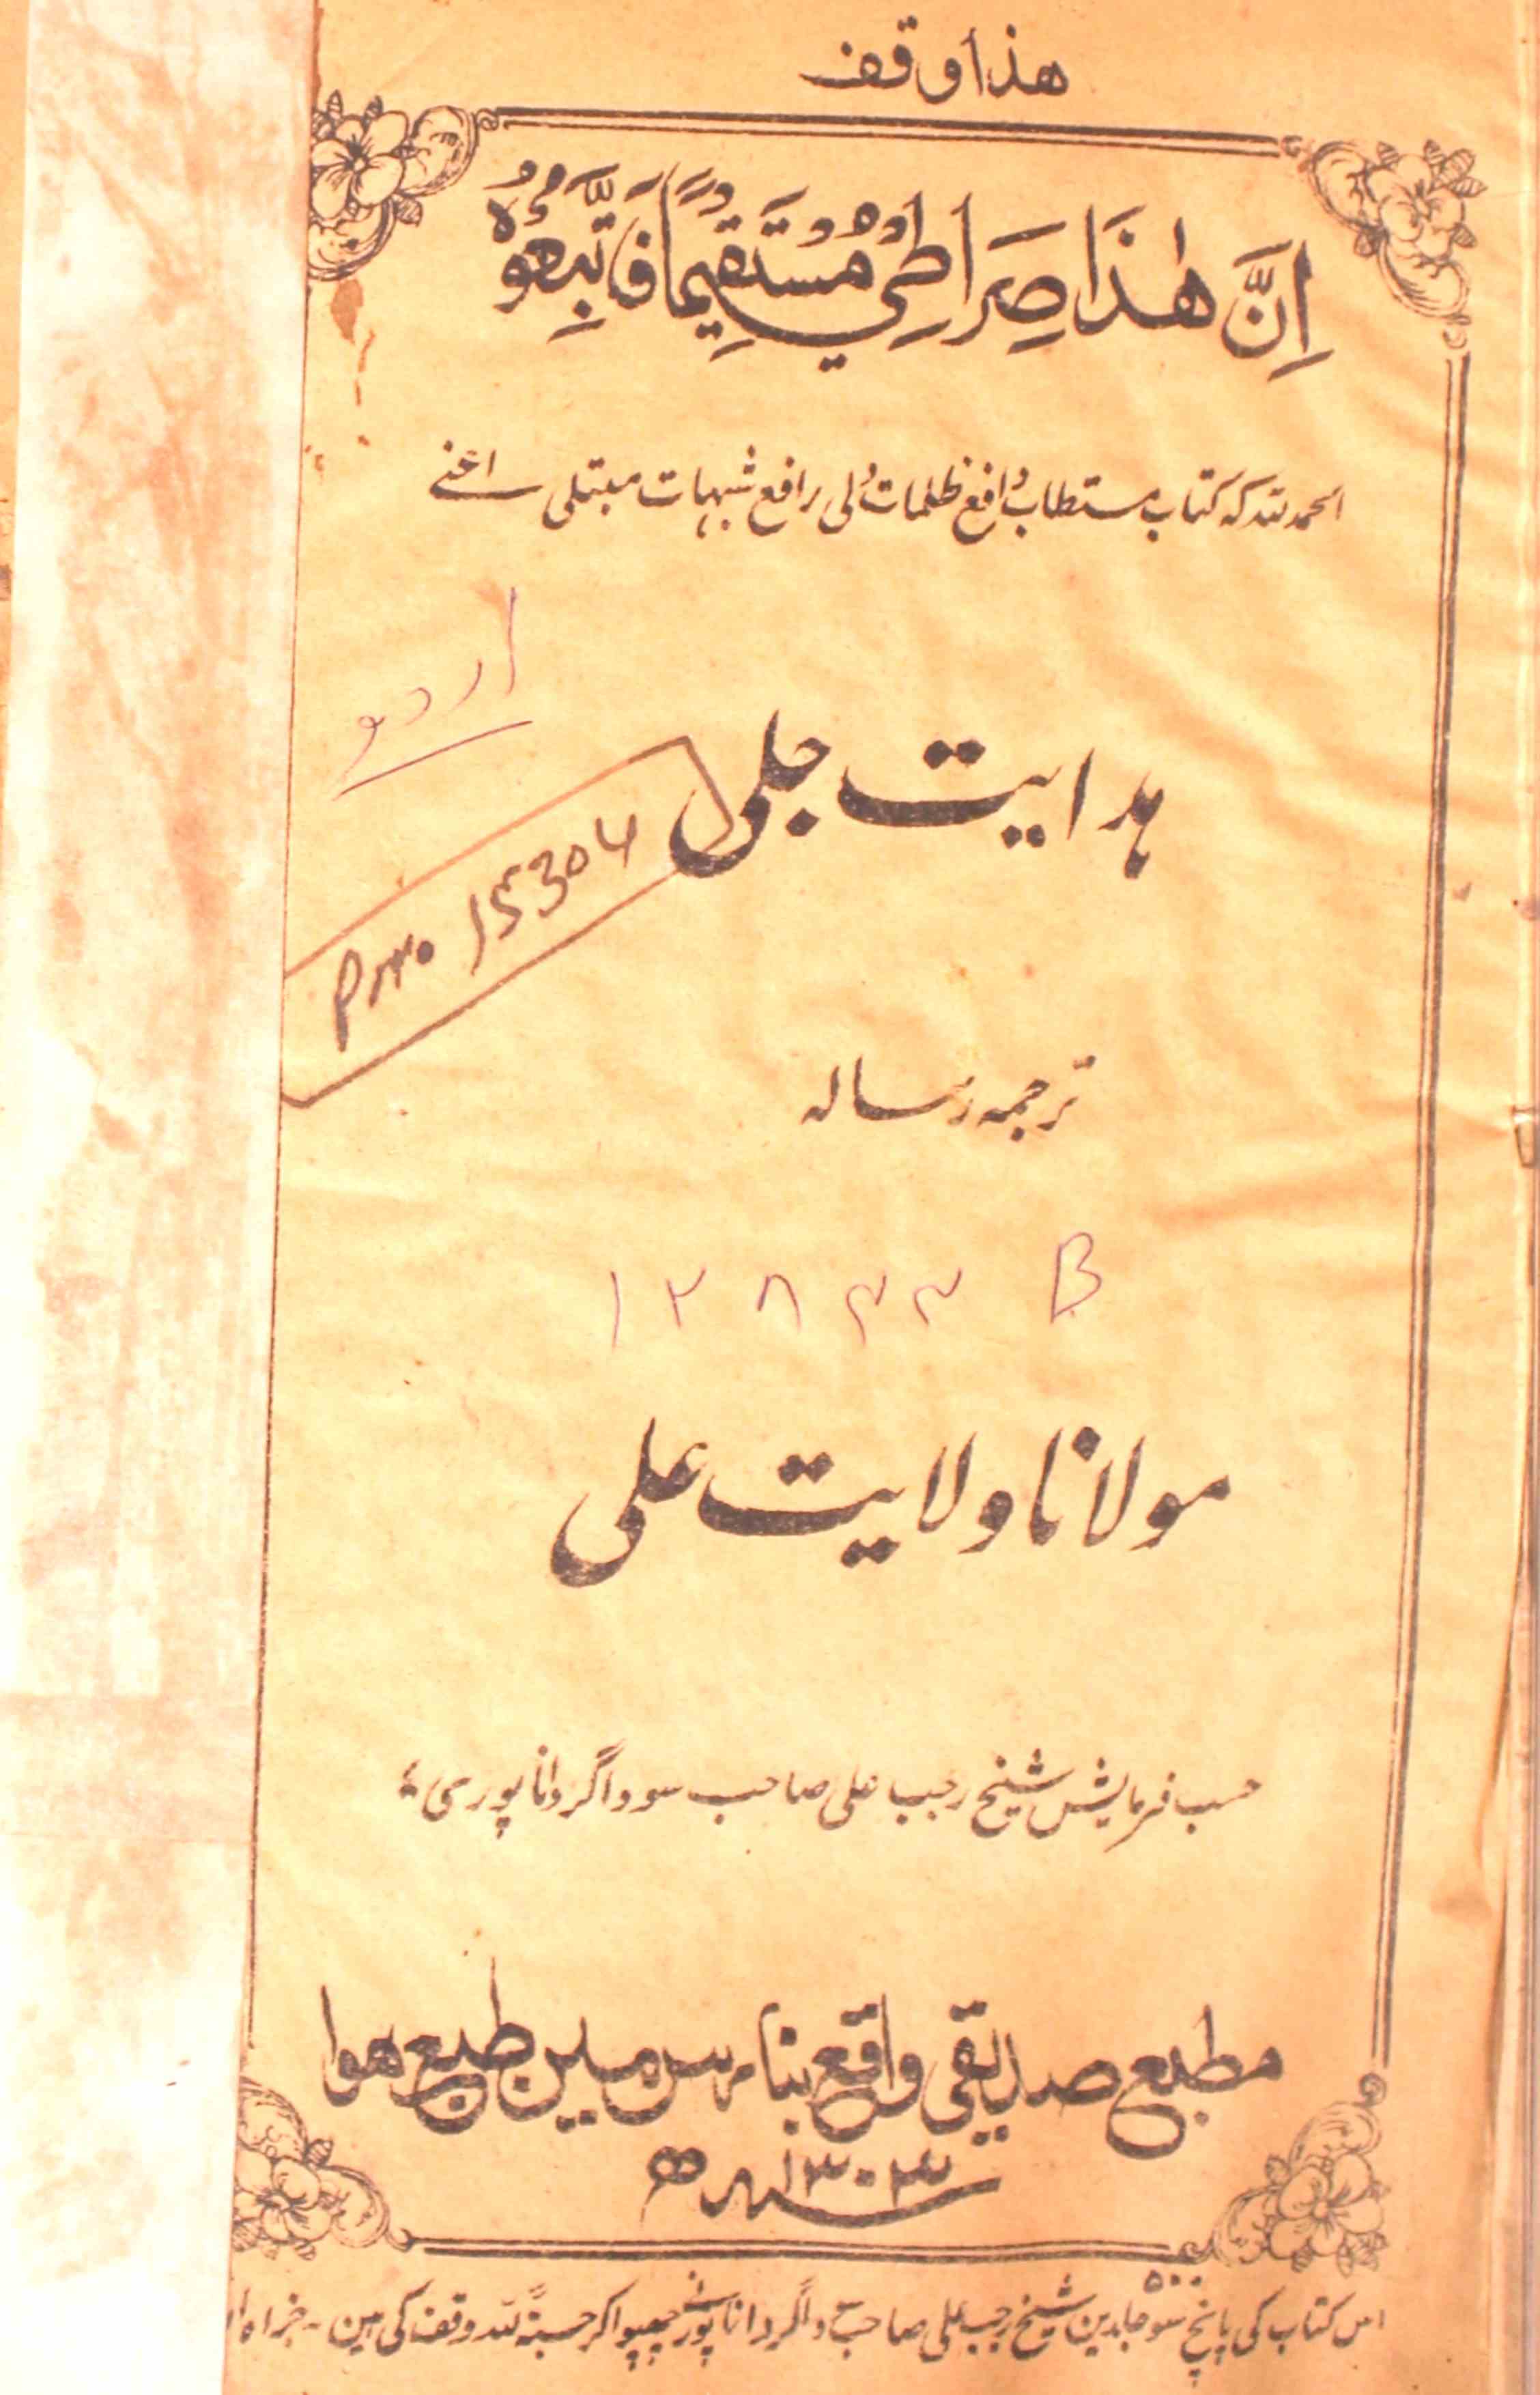 هذا وقف
اِنَّ هٰذَا صِرَاطِيْ مُسْتَقِيمًا فَاتَّبِعُوْهُ
الحمد للہ کہ کتاب مستطاب دافع ظلمات دلی رافع شبہات مبتلی اعنے
اردو
ہدایت جلی
P.No. 15304
ترجمہ رسالہ
۱۲۸۳۳ B
مولانا ولایت علی
حسب فرمایش شیخ رجب علی صاحب سوداگر داناپوری
مطبع صدیقی واقع بنارس میں طبع هوا
سنہ ۱۳۰۳ھ
۵۰۰
اس کتاب کی پانچ سو جلدین شیخ رجب علی صاحب سوداگر داناپور نے چھپوا کر حسبۃً للہ وقف کی ہین - جزاہ